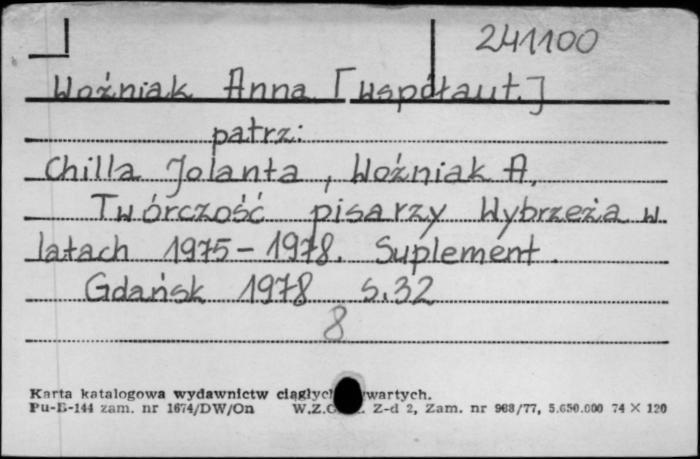 241100
Woźniak Anna [współaut.]
patrz:
Chilla Jolanta, Woźniak A.
Twórczość pisarzy Wybrzeża w
latach 1975-1978. Suplement.
Gdańsk 1978 S.32
8
Karta katalogowa wydawnictw
Pu-B-144 zam. nr 1674/DW/On Z-d 2, Zam. nr 968/77, 5.650.000 74 X 120